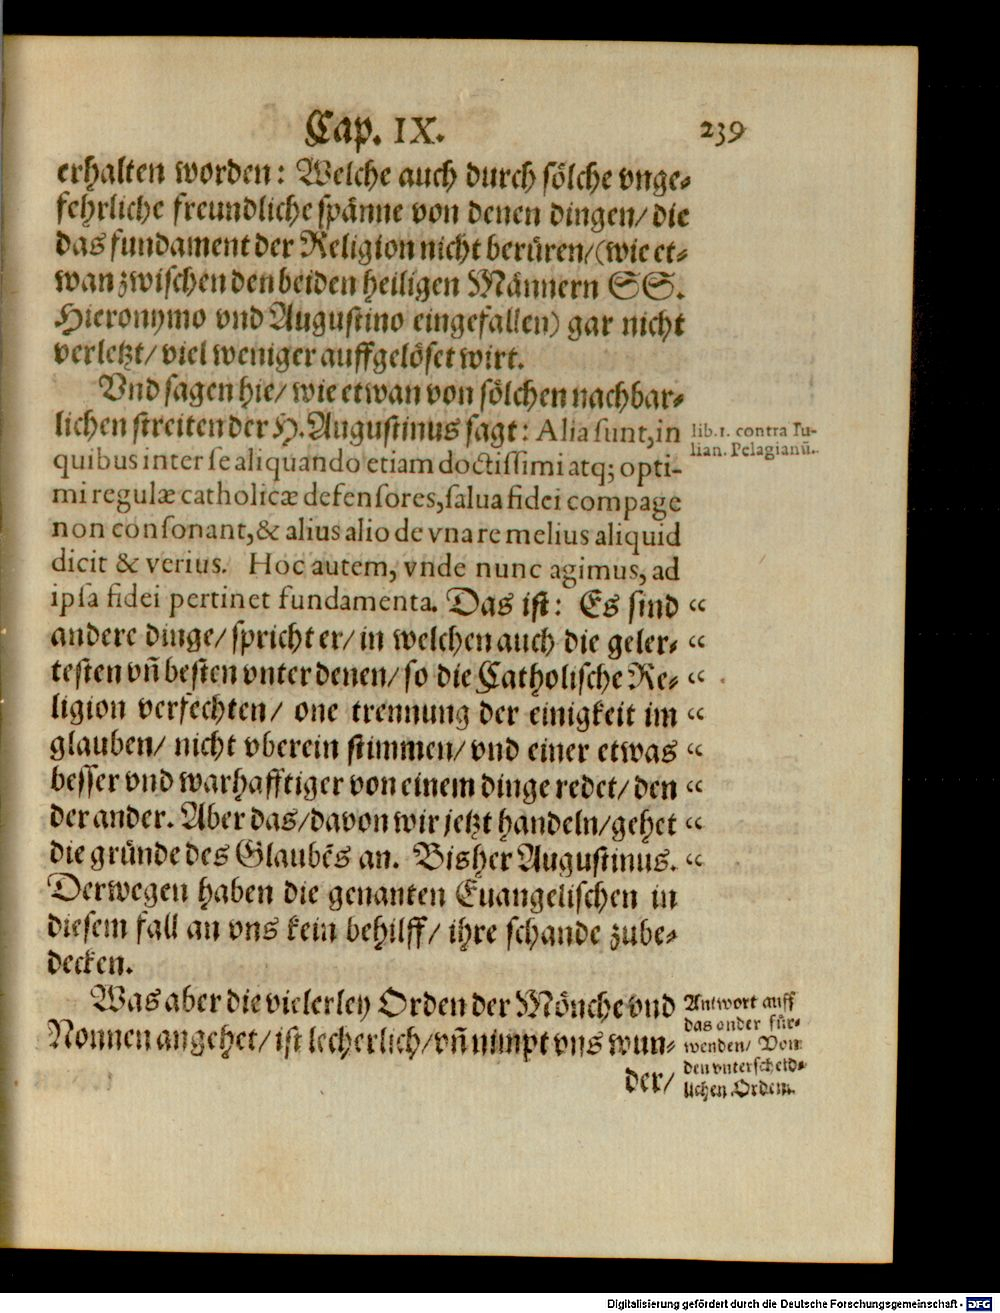 Cap. IX. 239
erhalten worden: Welche auch durch sölche vnge-
fehrliche freundliche spänne von denen dingen/ die
das fundament der Religion nicht berüren/ (wie et-
wan zwischen den beiden heiligen Männern SS.
Hieronymo vnd Augustino eingefallen) gar nicht
verletzt/ viel weniger auffgelöset wirt.
Vnd sagen hie/ wie etwan von sölchen nachbar-
lichen streiten der H. Augustinus sagt: Alia sunt, in
lib. 1. contra Iu-
lian. Pelagianū.
quibus inter se aliquando etiam doctissimi atq; opti-
mi regulæ catholicæ defensores, salua fidei compage
non consonant, & alius alio de vna re melius aliquid
dicit & verius. Hoc autem, vnde nunc agimus, ad
ipsa fidei pertinet fundamenta. Das ist: Es sind “
andere dinge/ spricht er/ in welchen auch die geler- “
testen vñ besten vnter denen/ so die Catholische Re- “
ligion verfechten/ one trennung der einigkeit im “
glauben/ nicht vberein stimmen/ vnd einer etwas “
besser vnd warhafftiger von einem dinge redet/ den “
der ander. Aber das/ davon wir jetzt handeln/ gehet “
die gründe des Glaubẽs an. Bisher Augustinus. “
Derwegen haben die genanten Euangelischen in
diesem fall an vns kein behilff/ ihre schande zube-
decken.
Was aber die vielerley Orden der Mönche vnd
Nonnen angehet/ ist lecherlich/ vñ nimpt vns wun-
der/
Antwort auff
das ander für-
wenden/ Von
den vnterscheid-
lichen Orden.
Digitalisierung gefördert durch die Deutsche Forschungsgemeinschaft - DFG